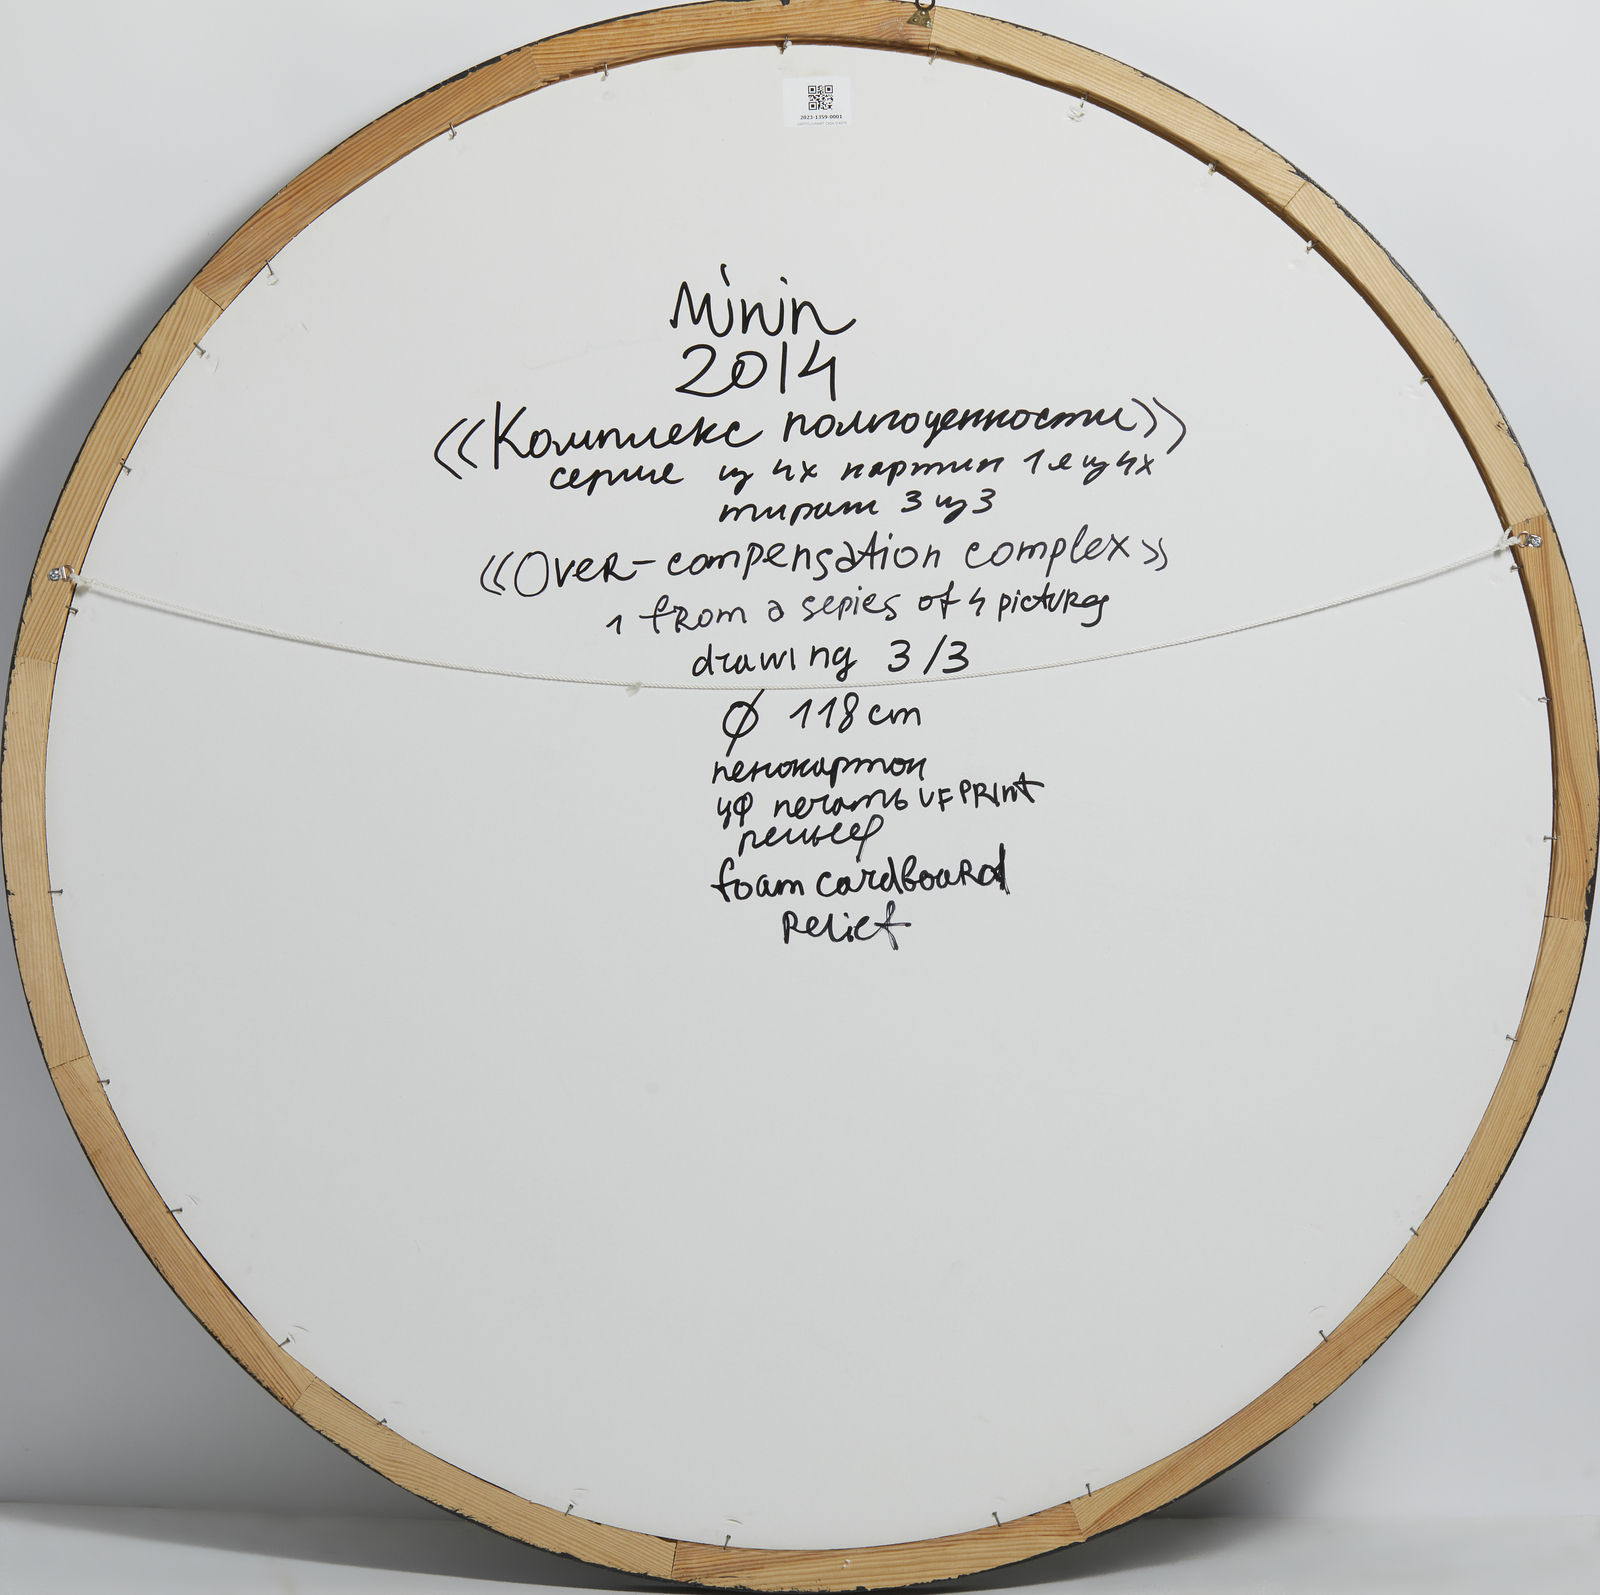 2023-1359-0001
Minin
2014
«Комплекс полноценности»
серие из 4х картин 1я из 4х
тираж 3 из 3
«Over-compensation complex»
1 from a sepies of 4 pictures
drawing 3/3
Ø 118 cm
пенокартон
уф печать UF PRINT
рельеф
foam cardboard
Relief